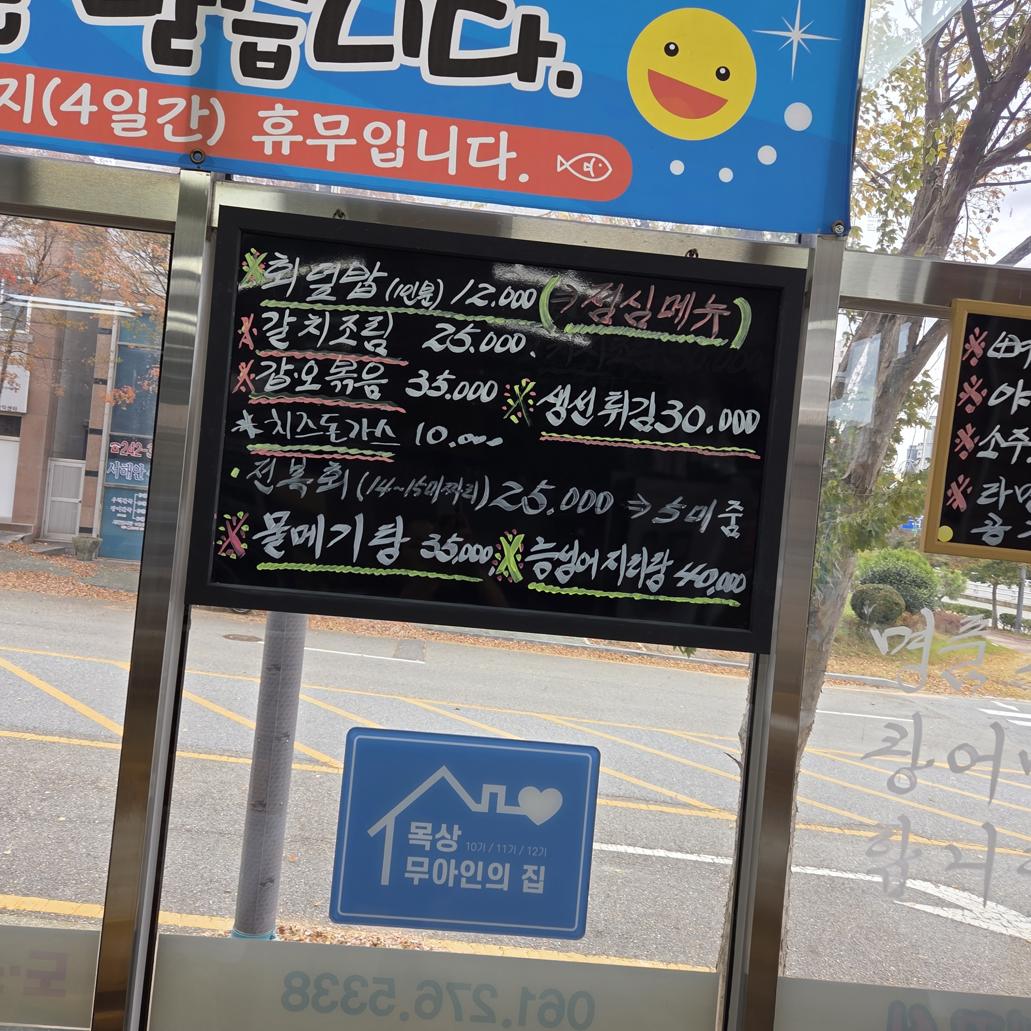 맞습니다.
지(4일간) 휴무입니다.
※회덮밥(1인분) 12.000 (⇒점심메뉴)
※갈치조림 25.000.
※갑.오볶음 35.000
※생선튀김30.000
※치즈돈가스 10.000
·전복회(14~15미짜리)25.000 ⇒ 5미줌
※물메기탕 35,000
※능성어지리탕 40,000
242-
목상 10기 / 11기 / 12기
무아인의 집
061.276.5338
소주
명품
광어